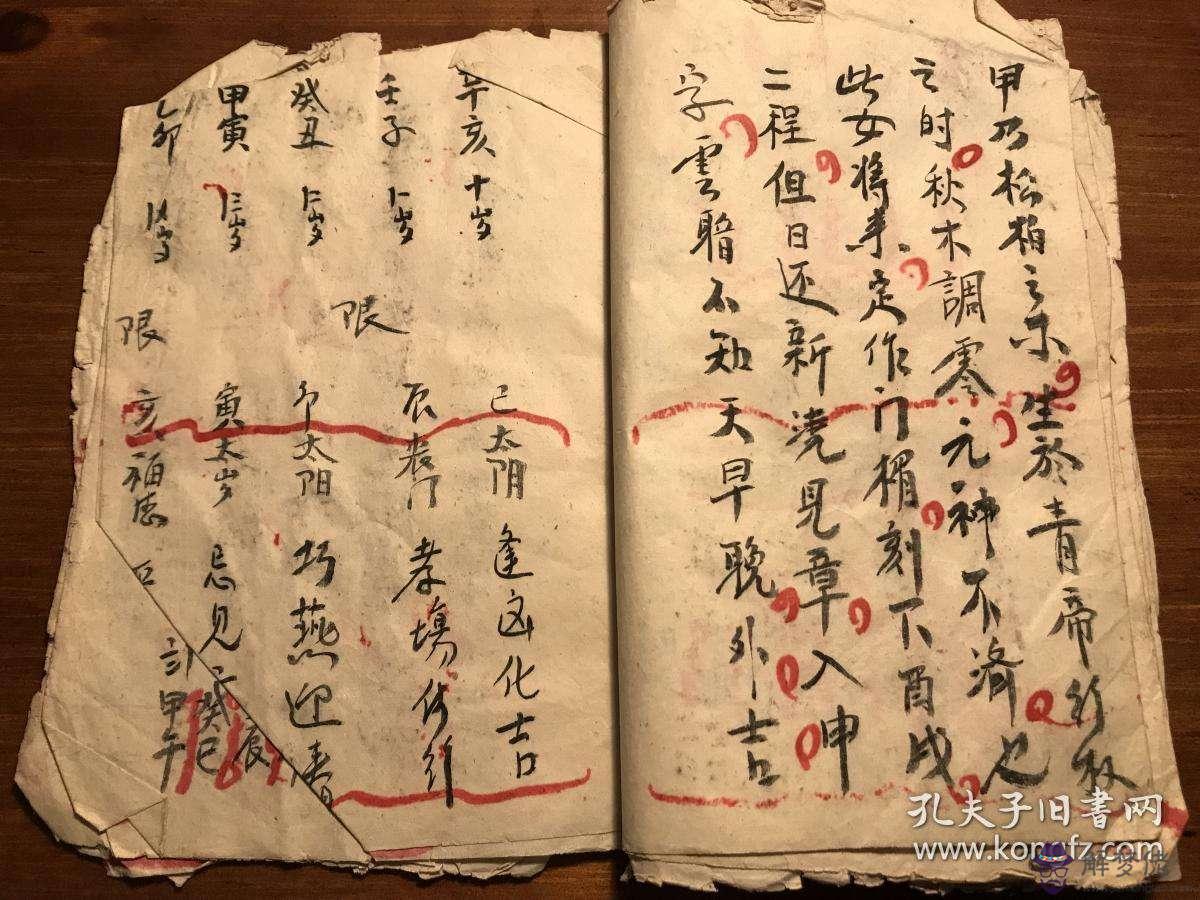 甲乃松柏之木生於青帝行权
之时秋木調零元神不济也
此女将来定作门楣刻下酉戌
二程但日还新浇見章入申
字雲暗不知天早晚外吉
辛亥 十岁 巳太阴 逢凶化吉
壬子 限 辰丧门 孝塲行
癸丑 岁 卯太阳 巧燕迎春
甲寅 岁 寅太岁 忌見癸巳
乙卯 限 亥福德
甲午
孔夫子旧书网
www.kongfz.com
解梦佬